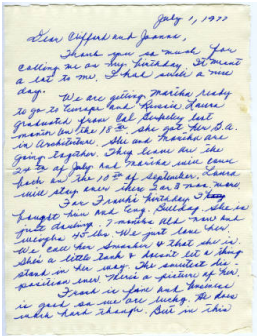 July 1, 1977
Dear Clifford and Joanne,
Thank you so much for
calling me on my birthday. It meant
a lot to me. I had quite a nice
day.
We are getting Marsha ready
to go to Europe and Russia. Laura
graduated from Cal Berkeley last
month on the 18th. She got her B.A.
in Architecture. She and Marsha are
going together. They leave on the
24th of July and Marsha will come
back on the 10th of September. Laura
will stay over there 2 or 3 mos. more
For Frank's birthday I
bought him an Eng. Bulldog. She is
just darling. 7 months old now and
weighs 45 lbs. We just love her.
We call her Smasher & that she is.
She's a little tank & doesn't let a thing
stand in her way. The sweetest dis-
position ever. Here's a picture of her.
Frank is fine and business
is good so we are lucky. He does
work hard though. But in this